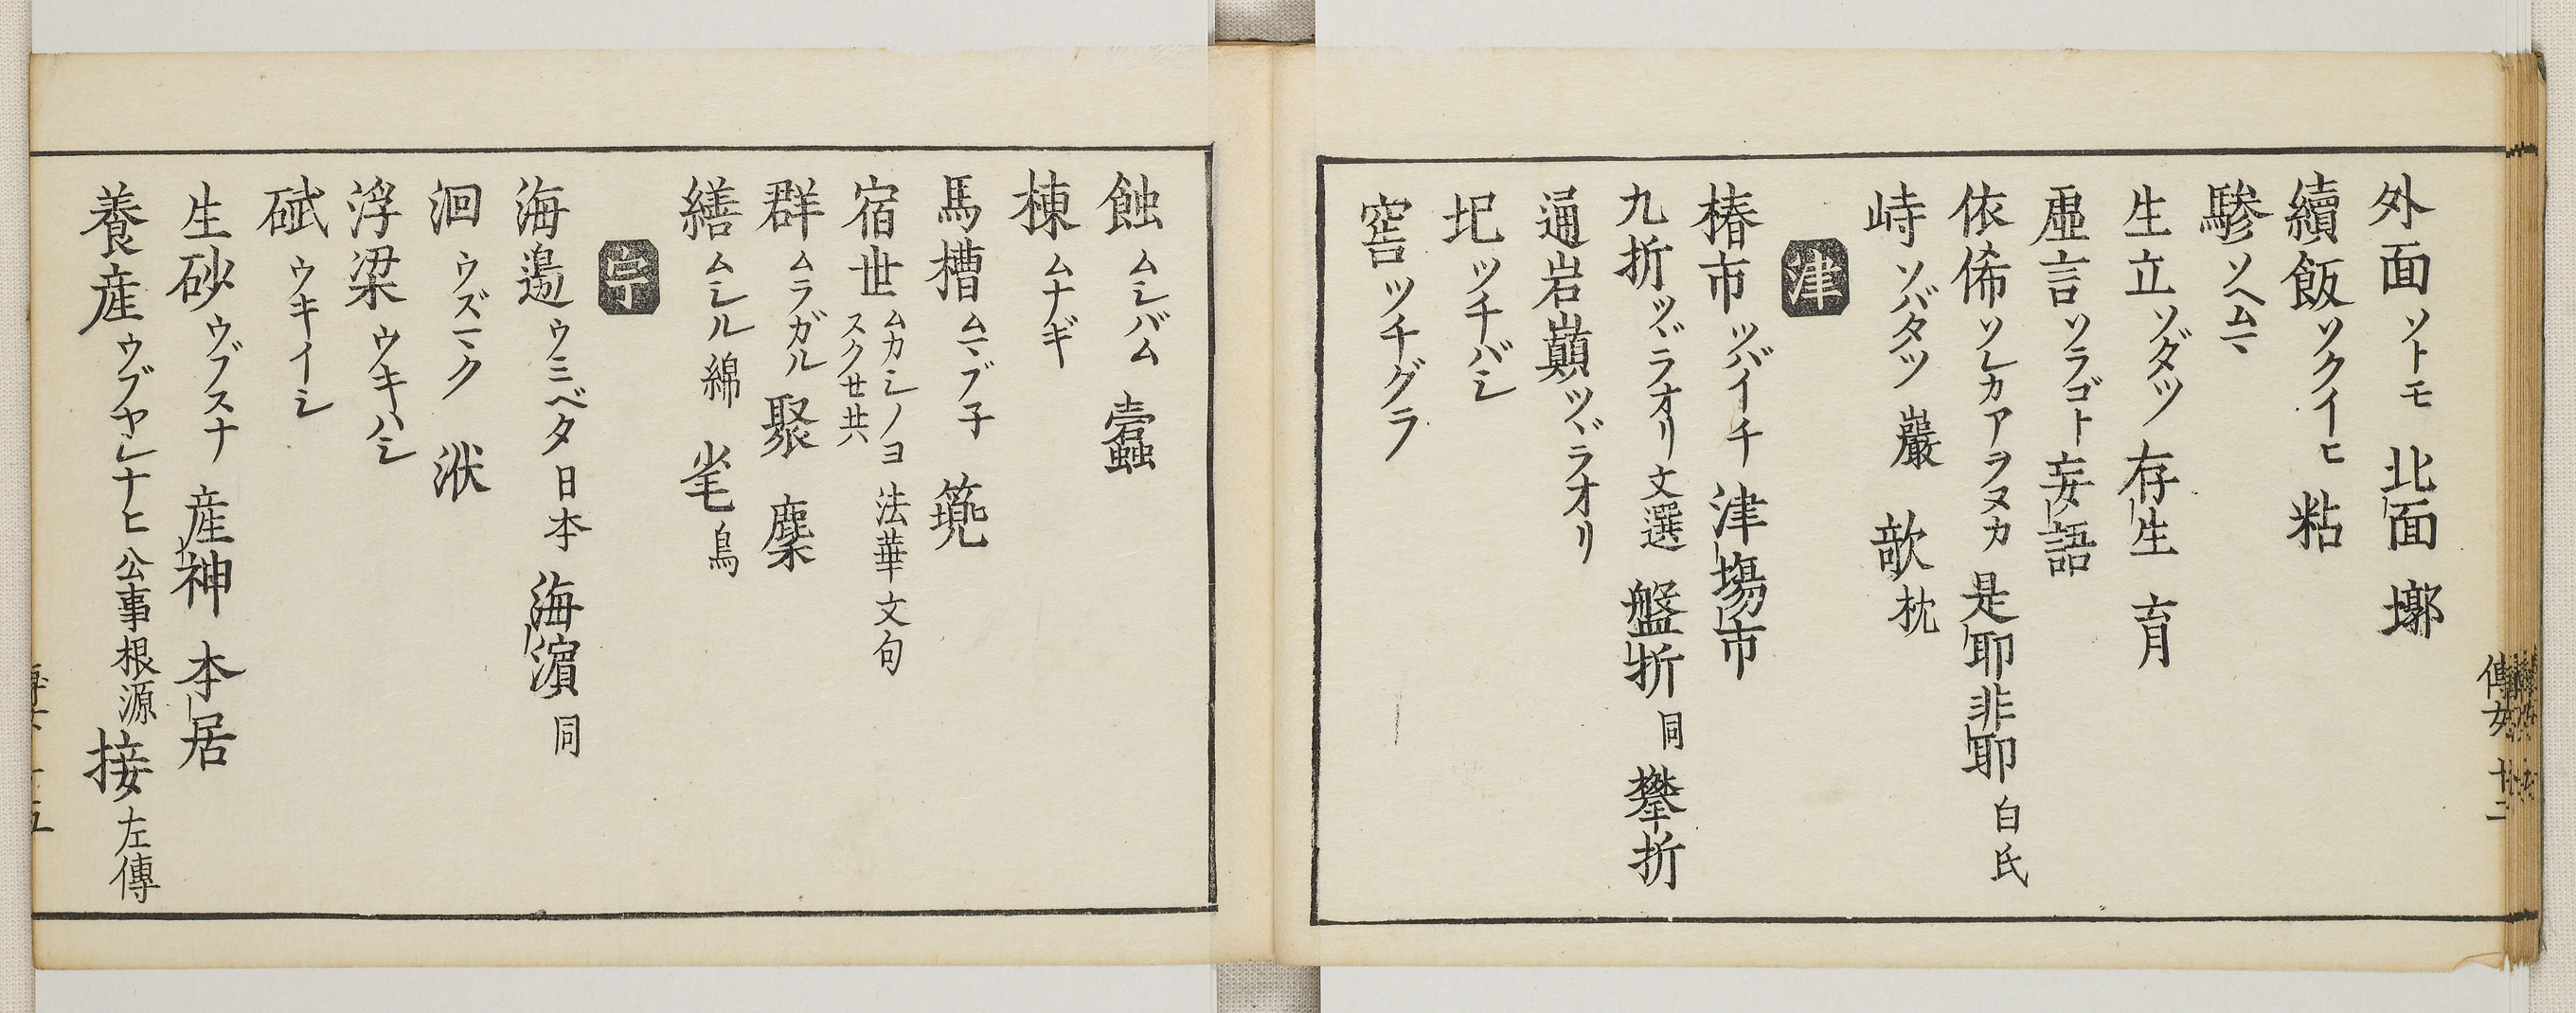 外面ソトモ 北面 墎
續飯ソクイヒ 粘
驂ソヘムマ
生立ソダツ 存生 育
虚言ソラゴト 妄語
依俙ソレカアラヌカ 是耶非耶 白氏
峙ソバタツ 巖 欹枕
津
椿市ツバイチ 津場市
九折ツヾラオリ 文選 盤折 同 攀折
通岩巔ツヾラオリ
圯ツチバシ
窖ツチグラ
蝕ムシバム 蠧
棟ムナギ
馬槽ムマブ子
宿世ムカシノヨ スクセ共 法華文句
群ムラガル 聚 麇
繕ムシル 綿 毟 鳥
宇
海邊ウミベタ 日本 海濵 同
洄ウズマク 洑
浮梁ウキハシ
碔ウキイシ
生砂ウブスナ 産神 本居
養産ウブヤシナヒ 公事根源 接 左傳